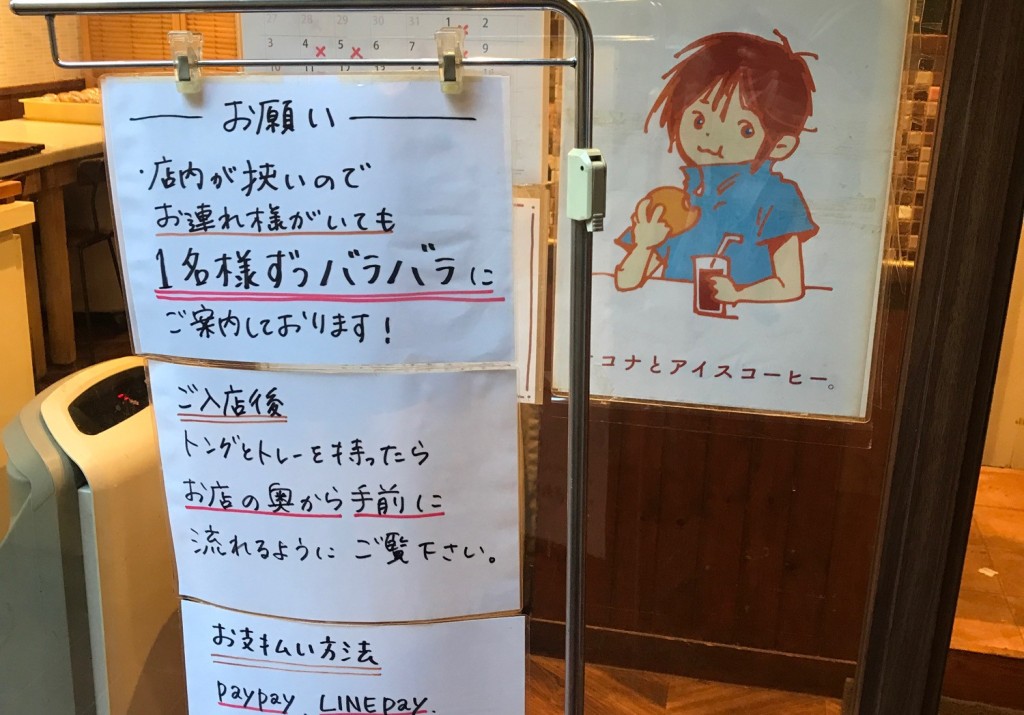 27 28 29 30 31 1 2
3 4 5 6 7 8 9
10 11 12 13
お願い
・店内が狭いので
お連れ様がいても
1名様ずつバラバラに
ご案内しております!
ご入店後
トングとトレーを持ったら
お店の奥から手前に
流れるように ご覧下さい。
お支払い方法
paypay、LINEpay.
コナとアイスコーヒー。